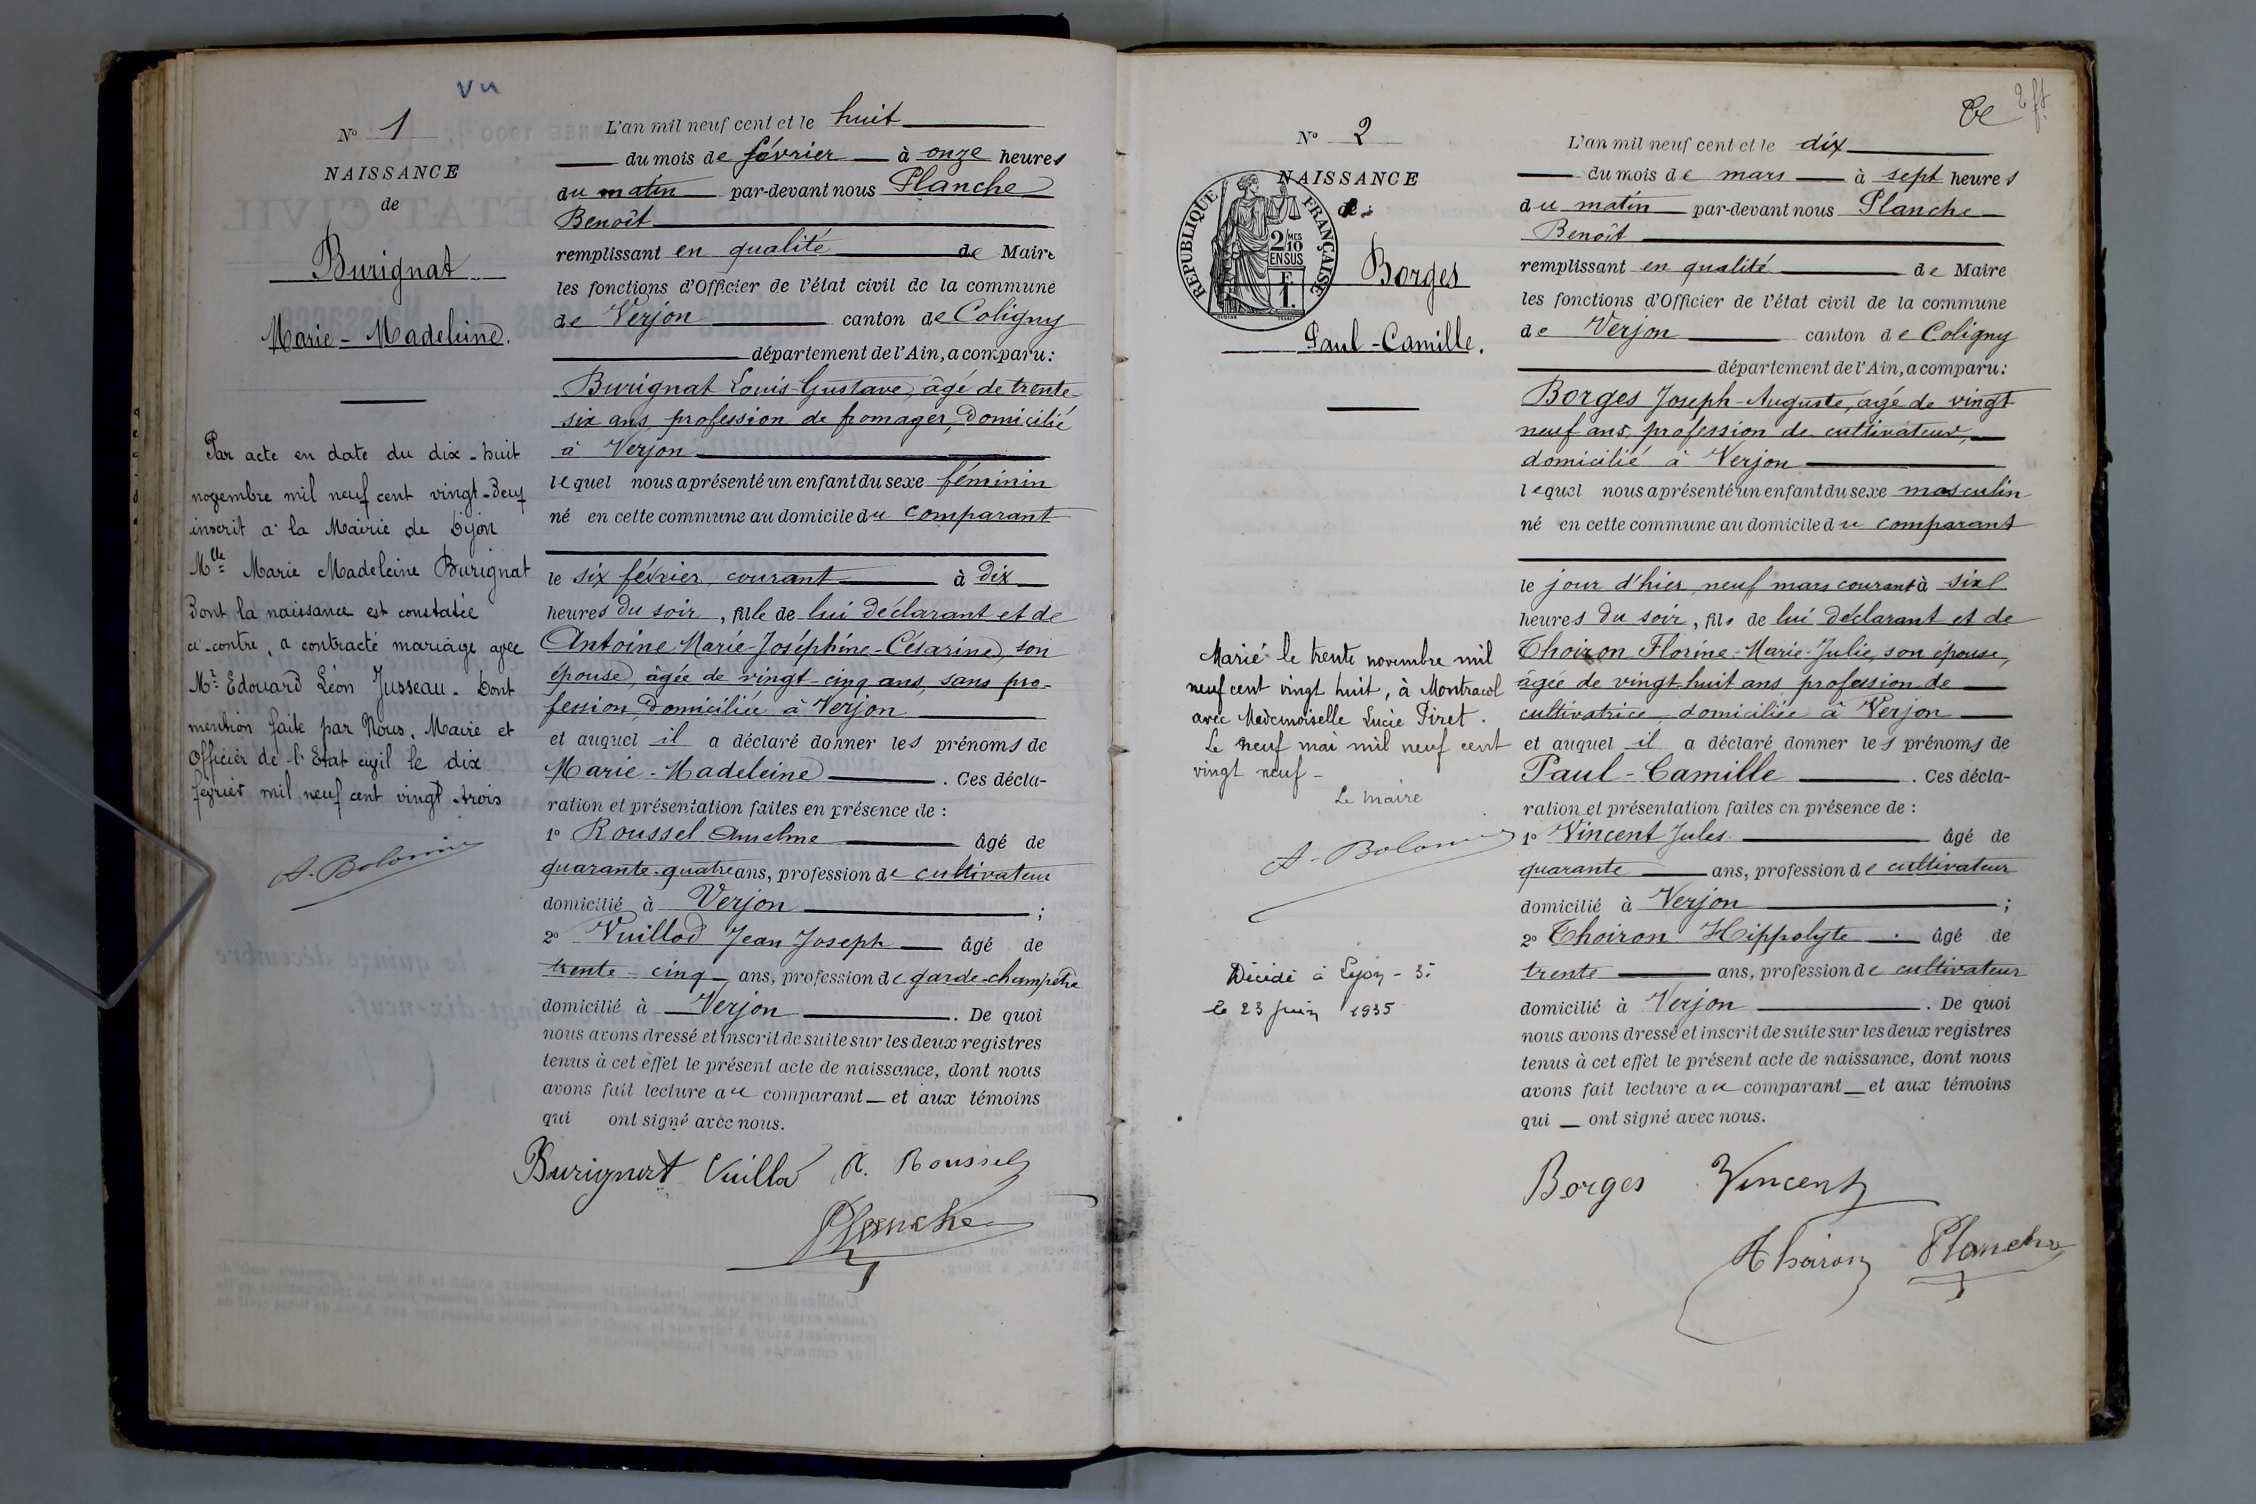 Vu
N° 1
NAISSANCE
de
Burignat
Marie-Madeleine.
Par acte en date du dix-huit
novembre mil neuf cent vingt-deux
inscrit à la Mairie de Dijon
Mlle Marie Madeleine Burignat
dont la naissance est constatée
ci-contre, a contracté mariage avec
Mr Edouard Léon Jusseau. Dont
mention faite par Nous, Maire et
Officier de l'Etat civil le dix
février mil neuf cent vingt-trois
L'an mil neuf cent et le huit
du mois de février à onze heures
du matin par-devant nous Planche
Benoît
remplissant en qualité de Maire
les fonctions d'Officier de l'état civil de la commune
de Verjon canton de Coligny
département de l'Ain, a comparu:
Burignat Louis-Gustave, âgé de trente-
six ans, profession de fromager, domicilié
à Verjon
lequel nous a présenté un enfant du sexe féminin
né en cette commune au domicile du comparant
le six février courant à dix
heures du soir, fille de lui déclarant et de
Antoine Marie-Joséphine-Césarine, son
épouse, âgée de vingt-cinq ans, sans pro-
fession, domiciliée à Verjon
et auquel il a déclaré donner les prénoms de
Marie-Madeleine. Ces décla-
ration et présentation faites en présence de :
1° Roussel Anselme âgé de
quarante-quatre ans, profession de cultivateur
domicilié à Verjon ;
2° Vuillod Jean Joseph âgé de
trente-cinq ans, profession de garde-champêtre
domicilié à Verjon. De quoi
nous avons dressé et inscrit de suite sur les deux registres
tenus à cet effet le présent acte de naissance, dont nous
avons fait lecture au comparant et aux témoins
qui ont signé avec nous.
Burignat Vuillod A. Roussel
Planche
2 ft
N° 2
NAISSANCE
de
REPUBLIQUE FRANÇAISE
2 MES
10
EN SUS
F.
1.
Borges
Paul-Camille.
Marié le trente novembre mil
neuf cent vingt huit, à Montracol
avec Mademoiselle Lucie Piret.
Le neuf mai mil neuf cent
vingt neuf -
Le Maire
Décédé à Lyon - 3e
le 23 Juin 1935
L'an mil neuf cent et le dix
du mois de mars à sept heures
du matin par-devant nous Planche
Benoît
remplissant en qualité de Maire
les fonctions d'Officier de l'état civil de la commune
de Verjon canton de Coligny
département de l'Ain, a comparu:
Borges Joseph-Auguste, âgé de vingt
neuf ans, profession de cultivateur,
domicilié à Verjon
lequel nous a présenté un enfant du sexe masculin
né en cette commune au domicile du comparant
le jour d'hier, neuf mars courant à six
heures du soir, fils de lui déclarant et de
Thoiron Florine-Marie-Julie, son épouse,
âgée de vingt-huit ans, profession de
cultivatrice, domiciliée à Verjon
et auquel il a déclaré donner les prénoms de
Paul-Camille. Ces décla-
ration et présentation faites en présence de :
1° Vincent Jules âgé de
quarante ans, profession de cultivateur
domicilié à Verjon ;
2° Thoiron Hippolyte âgé de
trente ans, profession de cultivateur
domicilié à Verjon. De quoi
nous avons dressé et inscrit de suite sur les deux registres
tenus à cet effet le présent acte de naissance, dont nous
avons fait lecture au comparant et aux témoins
qui ont signé avec nous.
Borges Vincent
Thoiron Planche